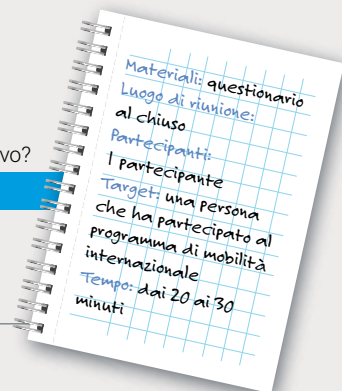 vo?
Materiali: questionario
Luogo di riunione:
al chiuso
Partecipanti:
1 partecipante
Target: una persona
che ha partecipato al
programma di mobilità
internazionale
Tempo: dai 20 ai 30
minuti